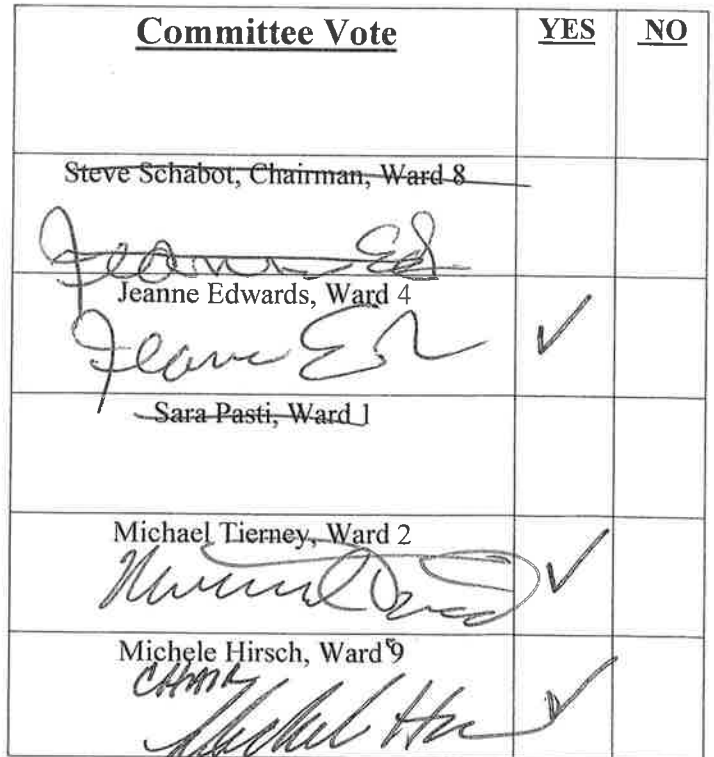 Committee Vote YES NO
Steve Schabot, Chairman, Ward 8
Jeanne Ed
Jeanne Edwards, Ward 4 ✓
Jeanne Ed
Sara Pasti, Ward 1
Michael Tierney, Ward 2 ✓
Michele Hirsch, Ward 9 ✓
CHAIR